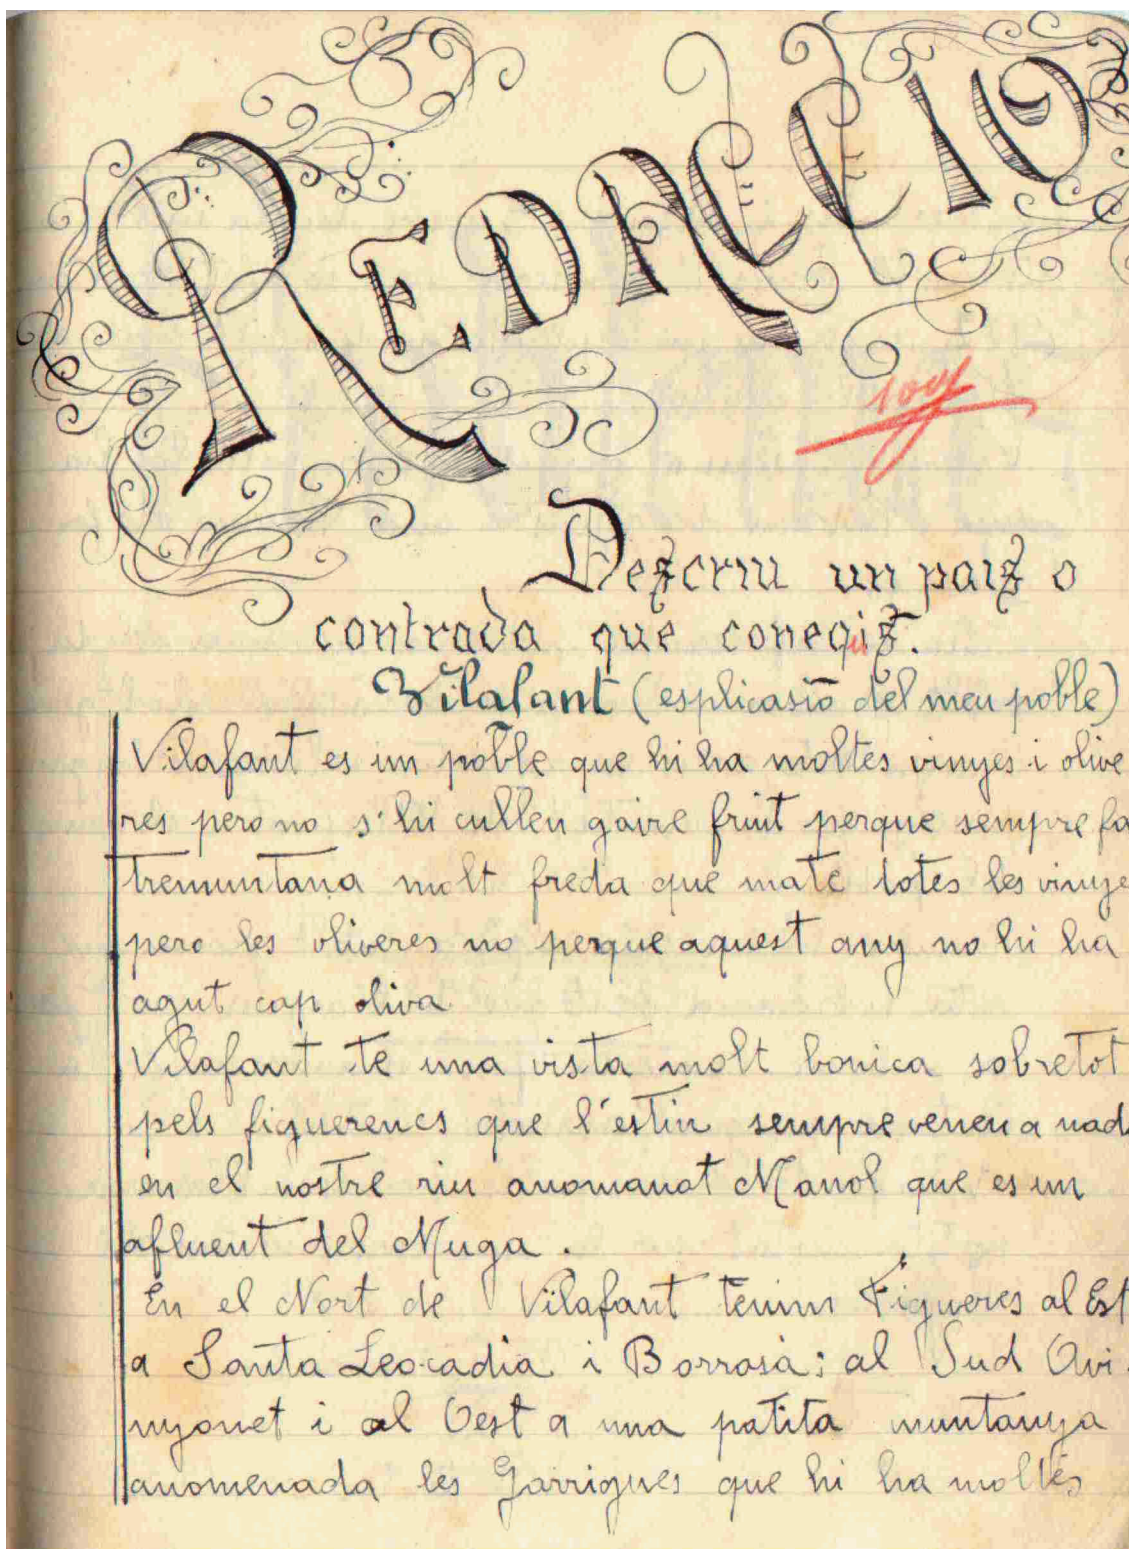 REDACCIÓ
Descriu un país o
contrada que coneguis.
Vilafant (esplicasió del meu poble)
Vilafant es un poble que hi ha moltes vinyes i olive
res pero no s'hi cullen gaire fruit perque sempre fa
tremuntana molt freda que mate totes les vinye
pero les oliveres no perque aquest any no hi ha
agut cap oliva
Vilafant te una vista molt bonica sobretot
pels figuerencs que l'estiu sempre venen a nad
en el nostre riu anomanat Manol que es un
afluent del Muga.
En el Nort de Vilafant tenim Figueres al Est
a Santa Leocadia i Borrosà; al Sud Avi
nyonet i al Oest a una patita muntanya
anomenada les Garrigues que hi ha moltes